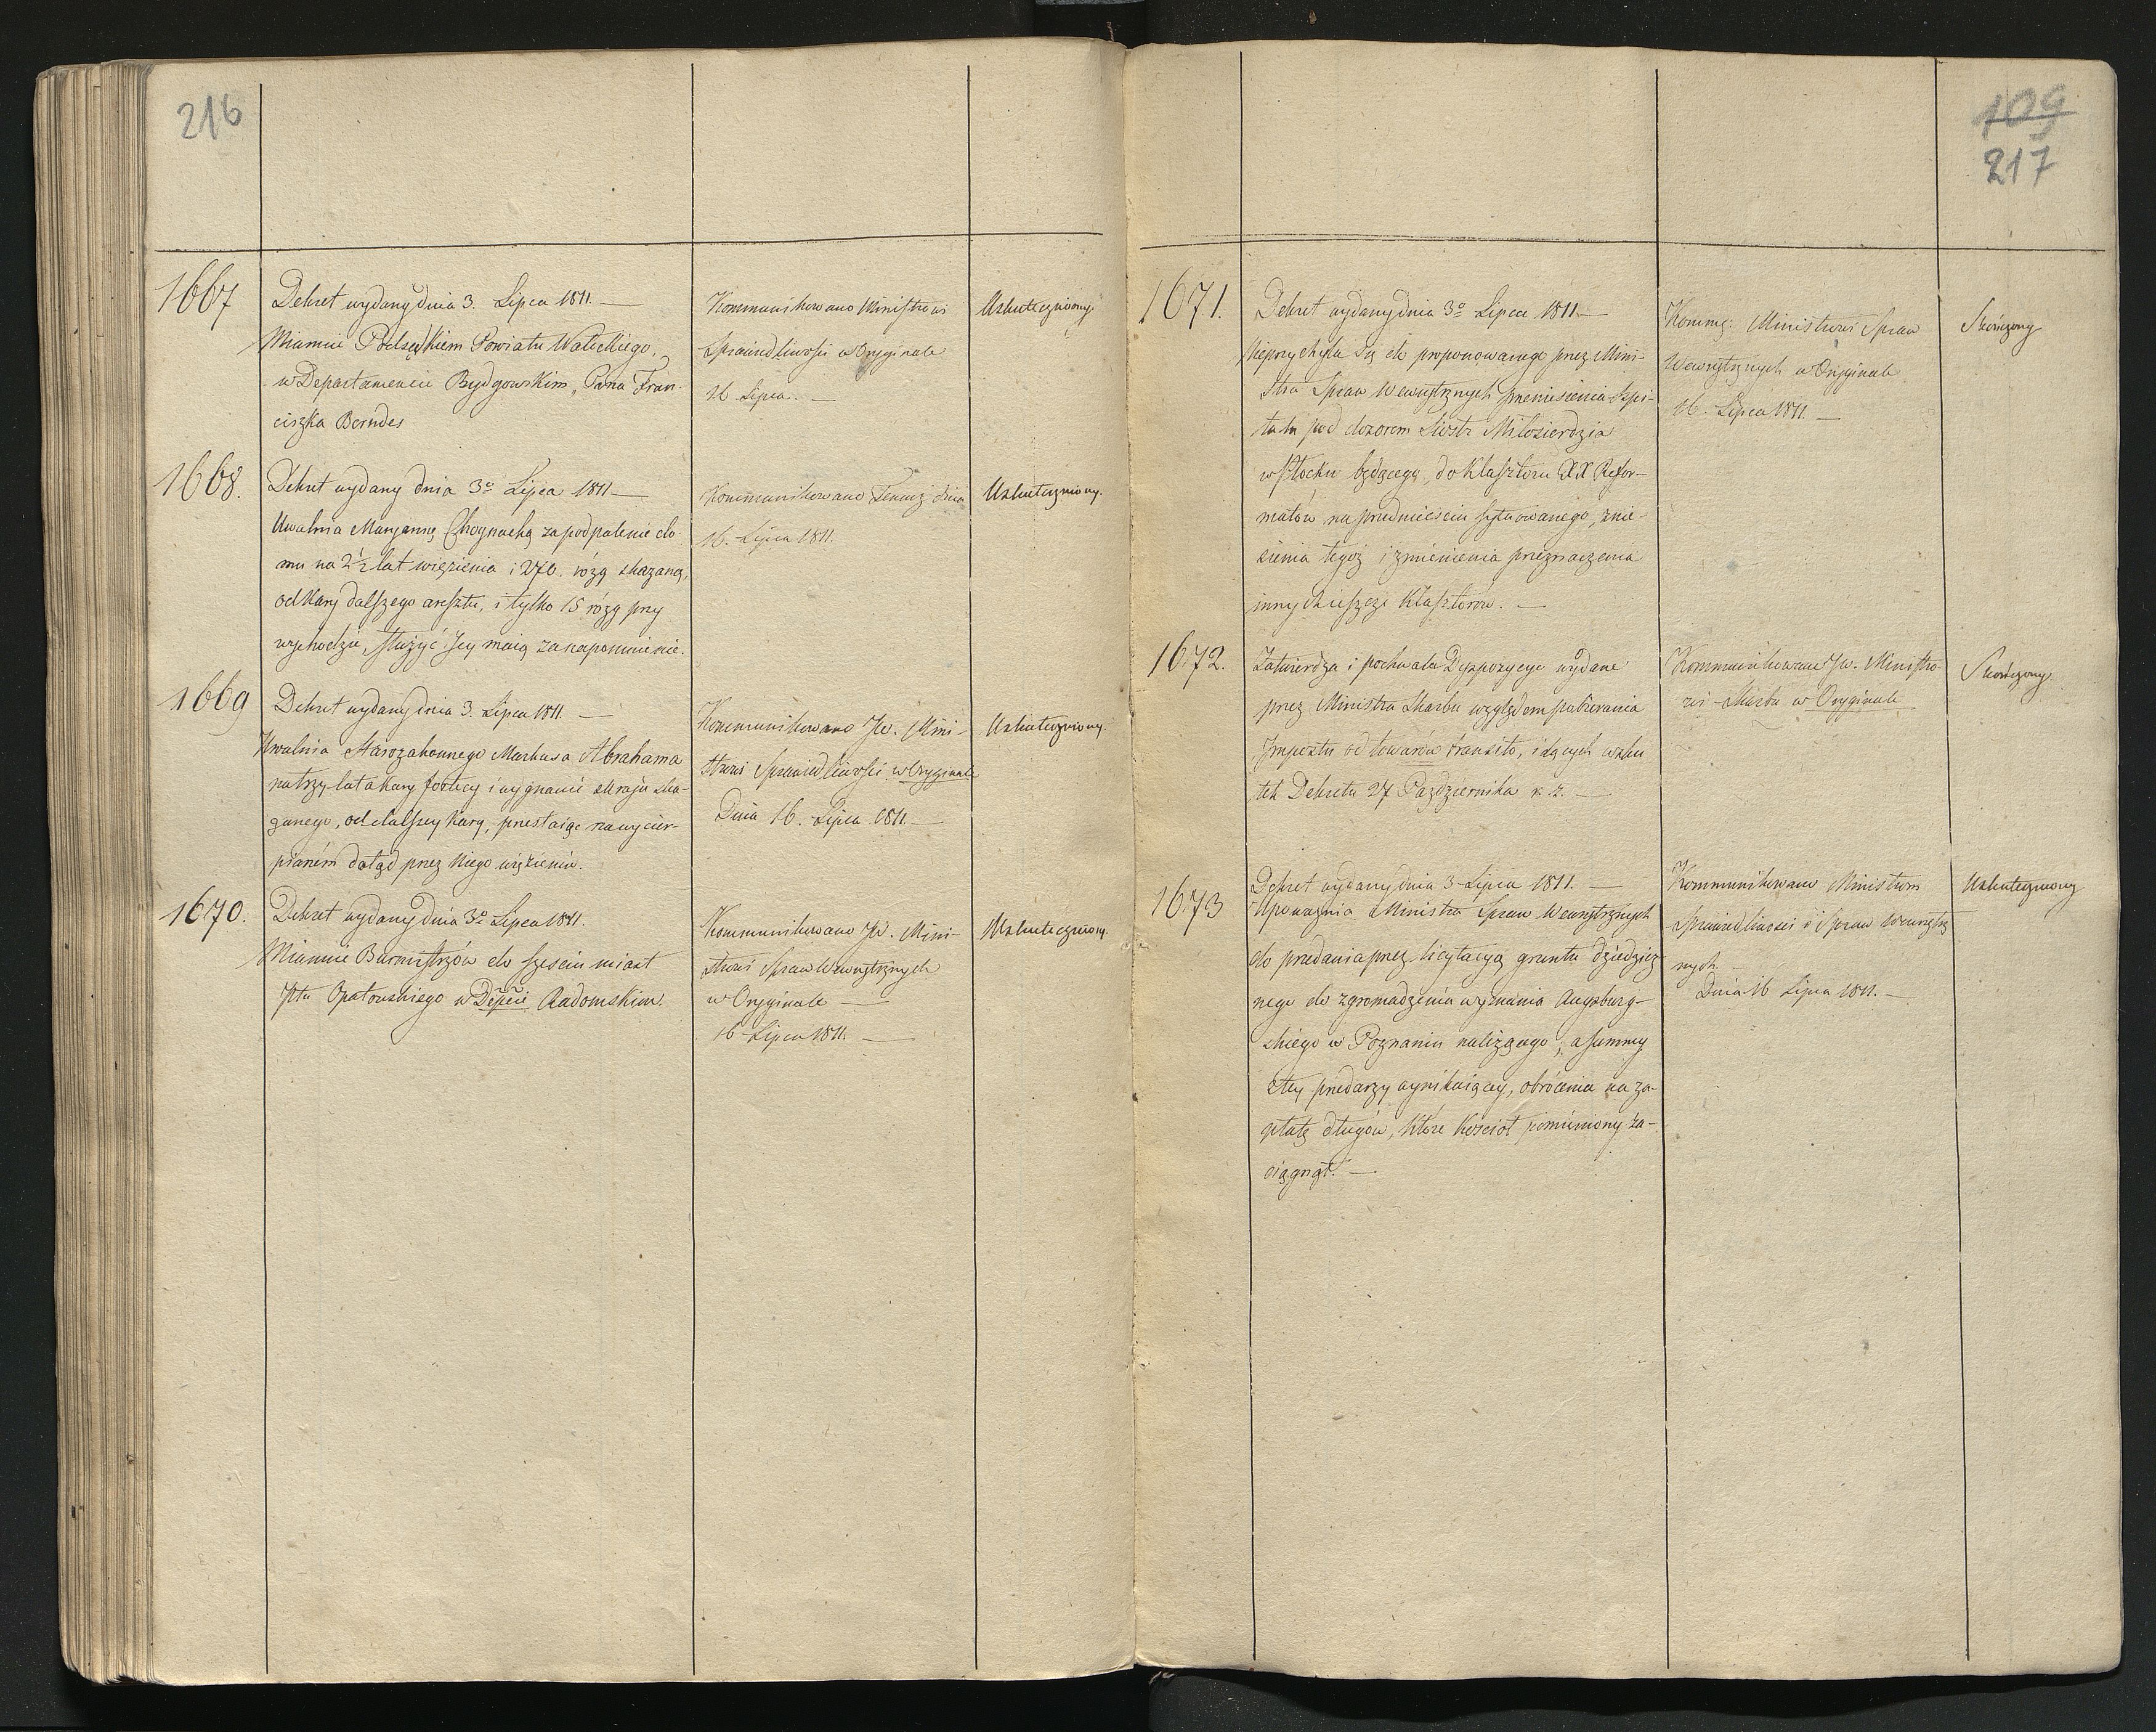 216
1667
Dekret wydany dnia 3. Lipca 1811. —
Mianuie Podsędkiem Powiatu Waleckiego,
w Departamencie Bydgowskim, Pana Fran-
ciszka Berndes
Kommunikowano Ministrowi
Sprawiedliwości w Oryginale
16 Lipca. —
Uskuteczniony.
1668.
Dekret wydany dnia 3o Lipca 1811 —
Uwalnia Maryannę Choynacką za podpalenie do-
mu na 2½ lat więzienia i 270. rózg skazaną,
od kary dalszego aresztu, i tylko 15 rózg przy
wychodzie, służyć Jey maią za napomnienie.
Kommunikowano Temuż dnia
16. Lipca 1811.
Uskuteczniony.
1669
Dekret wydany dnia 3. Lipca 1811. —
Uwalnia Starozakonnego Markusa Abrahama
na trzy lata kary fortecy i wygnanie z kraju ska-
zanego, od dalszey kary, przestaiąc na wycier-
pianém dotąd przez niego więzieniu.
Kommunikowano Jw. Mini-
strowi Sprawiedliwości w Oryginale
Dnia 16. Lipca 1811. —
Uskuteczniony.
1670.
Dekret wydany dnia 3o Lipca 1811.
Mianuie Burmistrzów do sześciu miast
Ptu Opatowskiego w Depcie Radomskim.
Kommunikowano JW. Mini-
strowi Spraw Wewnętrznych
w Oryginale —
16 Lipca 1811. —
Uskuteczniony.
109
217
1671.
Dekret wydany dnia 3o Lipca 1811 —
Nieprzychyla się do proponowanego przez Mini-
stra Spraw Wewnętrznych przeniesienia Szpi-
talu pod dozorem Siostr Miłosierdzia
w Płocku będącego, do Klasztoru XX Refor-
matów na przedmieściu sytuowanego, znie-
sienia tegoż i zmienienia przeznaczenia
innych ieszcze Klasztorów. —
Kommq: Ministrowi Spraw
Wewnętrznych w Oryginale
16. Lipca 1811. —
Skończony
1672.
Zatwierdza i pochwala Dyspozycye wydane
przez Ministra Skarbu względem pobierania
Impostu od towarów transito, idących wsku
tek Dekretu 27 Października r. z. —
Kommunikowano Jw. Ministro-
wi Skarbu w Oryginale
Skończony.
1673
Dekret wydany dnia 3 Lipca 1811. —
Upoważnia Ministra Spraw Wewnętrznych
do przedania przez licytacyą gruntu dziedzicz
nego do zgromadzenia wyznania Augsburg-
skiego w Poznaniu należącego, a summy
z tey przedarzy wynikaiącey, obrócenia na za-
płatę długów, które kościoł pomieniony za-
ciągnął. —
Kommunikowano Ministrom
Sprawiedliwości i Spraw Wewnętrz
nych. —
Dnia 16 Lipca 1811. —
Uskuteczniony